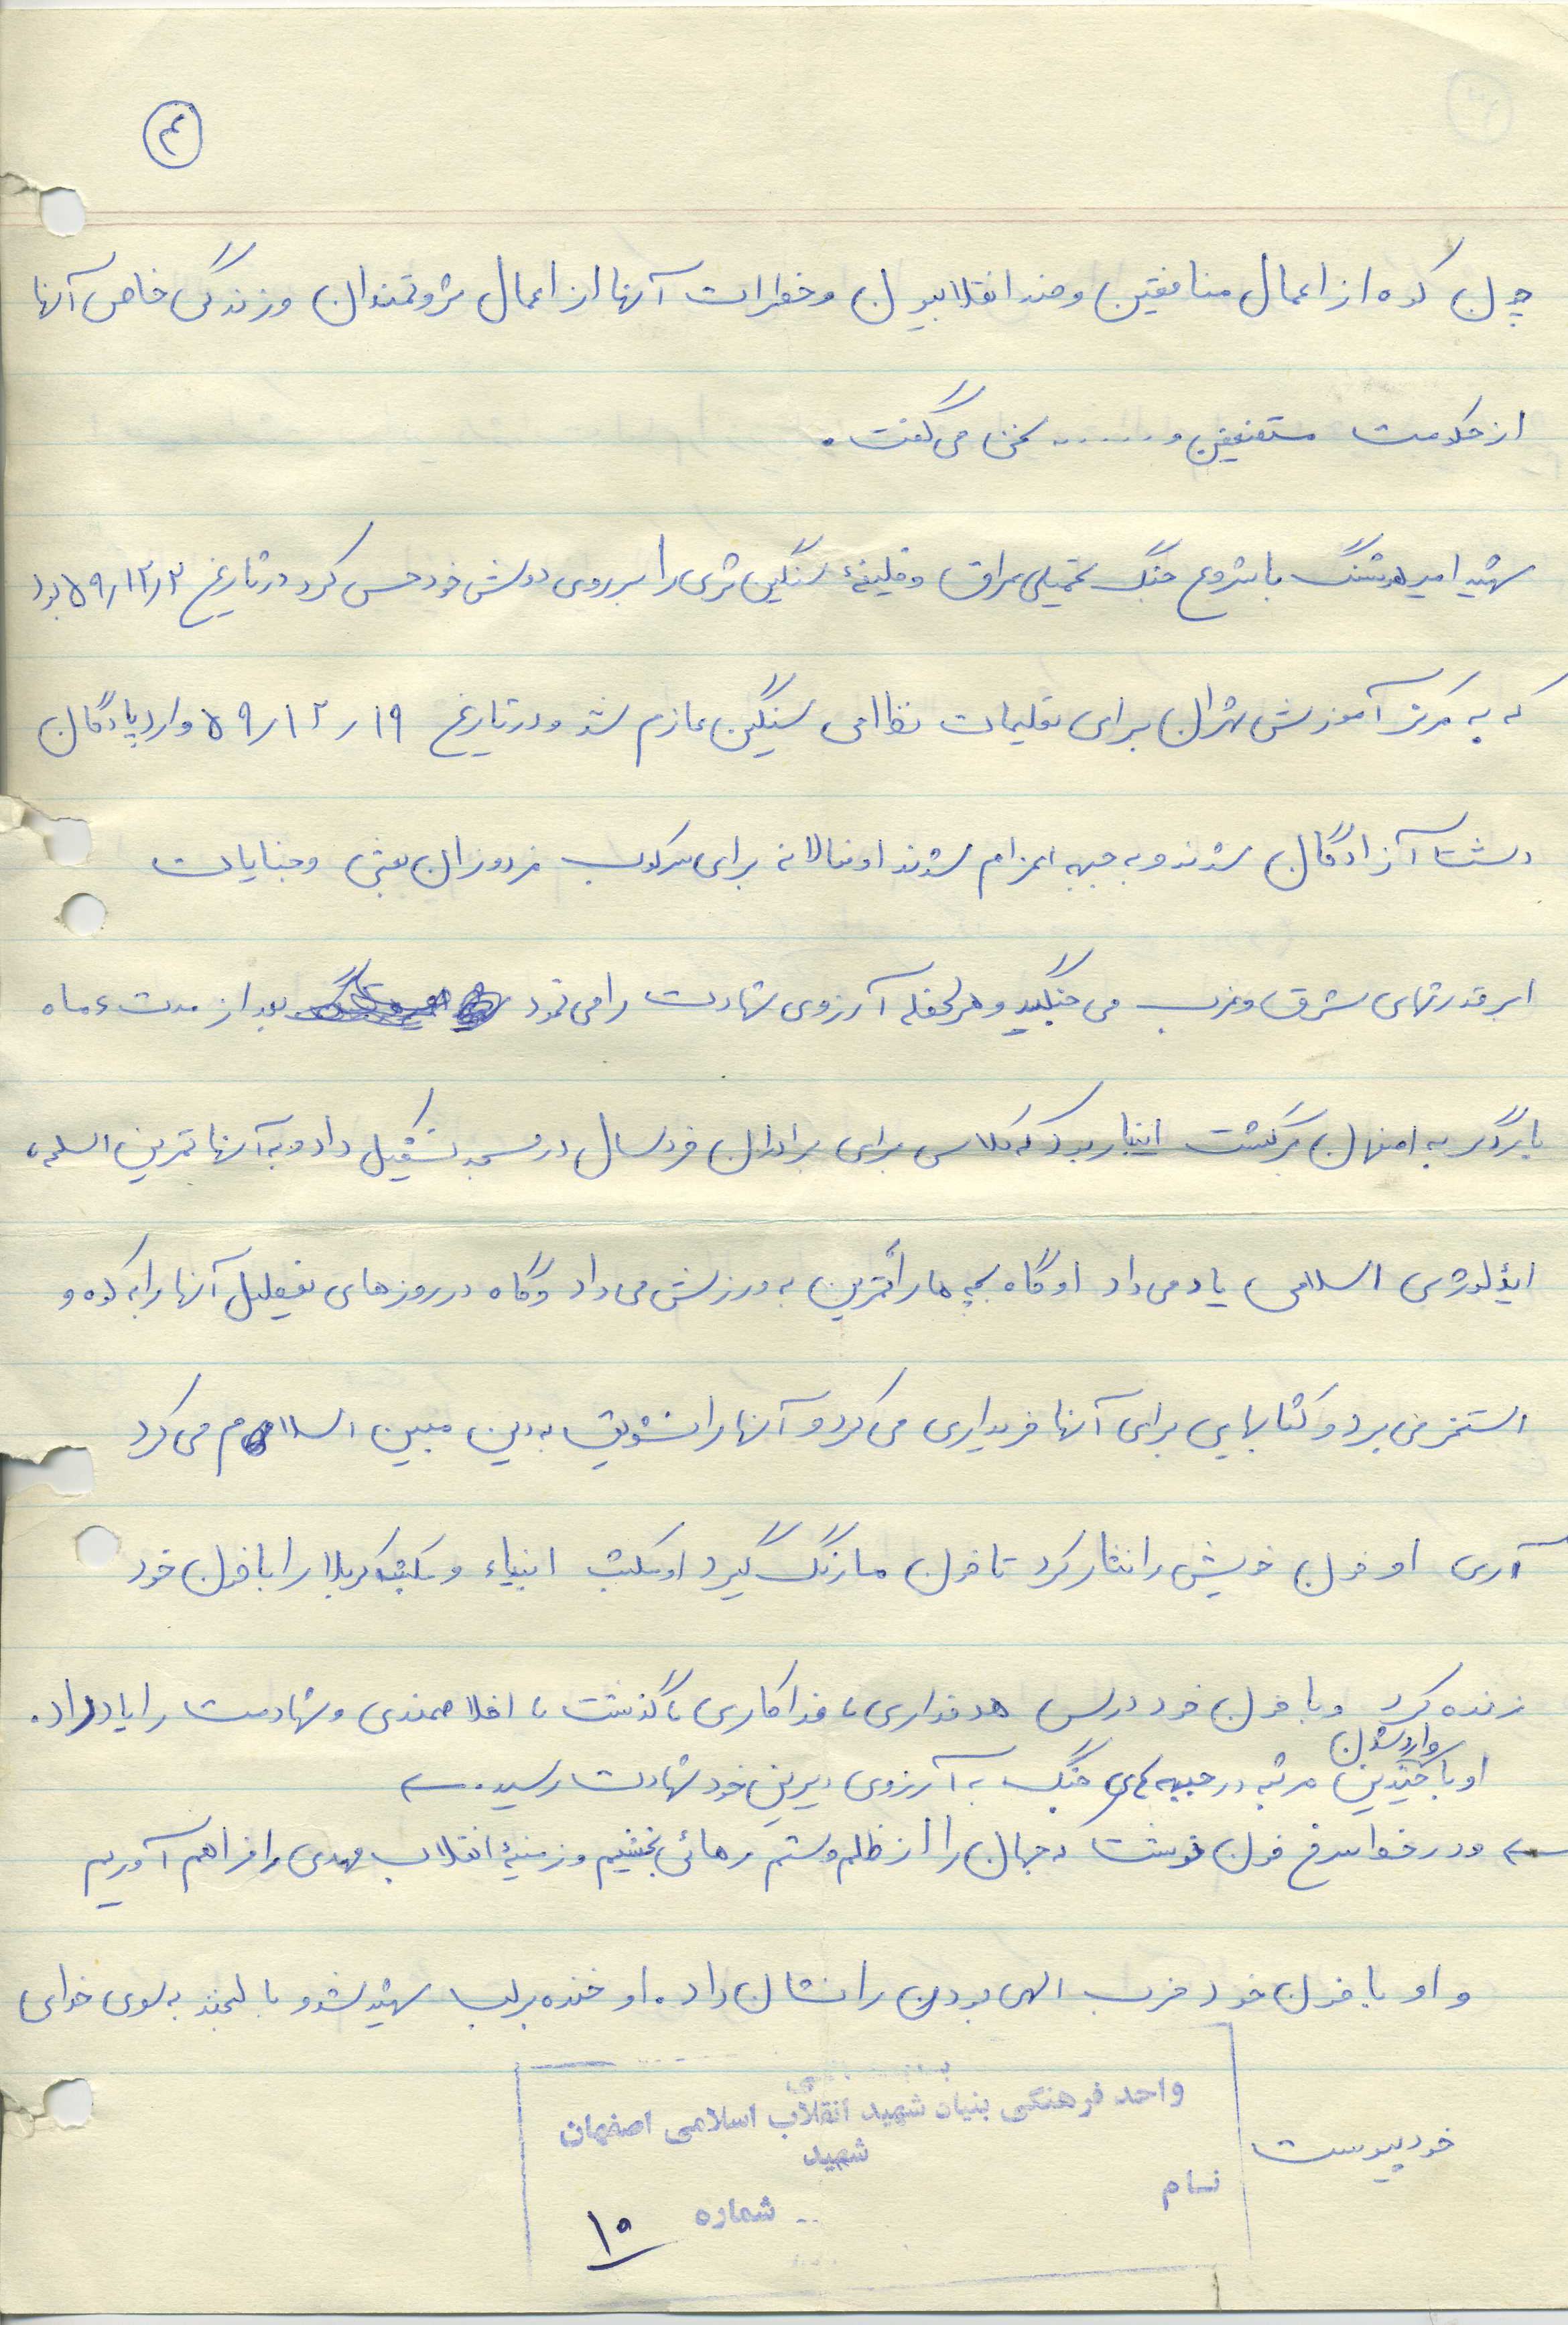 ۴
چون کوه از اعمال منافقین و ضد انقلابیون و خطرات آنها از اعمال ثروتمندان و زندگی خاص آنها
از حکومت مستضعفین و ....... سخن می گفت .
شهید امیر هوشنگ با شروع جنگ تحمیلی عراق وظیفهٔ سنگین تری را بر روی دوش خود حس کرد در تاریخ ۵۹/۱۲/۲ بود
که به مرکز آموزش تهران برای تعلیمات نظامی سنگین عازم شد و در تاریخ ۵۹/۱۲/۱۹ وارد پادگان
دشت آزادگان شدند و به جبهه اعزام شدند او فعالانه برای سرکوب مزدوران بعثی و جنایات
ابر قدرتهای شرق و غرب می جنگید و هر لحظه آرزوی شهادت را می نمود بعد از مدت ۶ ماه
بار دگر به اصفهان برگشت اینبار بود که کلاسی برای برادران خردسال در مسجد تشکیل داد و به آنها تمرین اسلحه ،
ایدئولوژی اسلامی یاد می داد او گاه بچه ها را تمرین به ورزش می داد و گاه در روزهای تعطیل آنها را به کوه و
استخر می برد و کتابهایی برای آنها خریداری می کرد و آنها را تشویق به دین مبین اسلام می کرد
آری او خون خویش را نثار کرد تا خون ما رنگ گیرد او مکتب انبیاء و مکتب کربلا را با خون خود
زنده کرد و با خون خود درس هدفداری ، فداکاری ، گذشت ، اخلاصمندی و شهادت را یاد داد .
وارد شدن
او با چندین مرتبه در جبهه های جنگ به آرزوی دیرین خود شهادت رسید .
و در خط سرخ خون نوشت که جهان را از ظلم و ستم رهائی بخشیم و زمینهٔ انقلاب مهدی را فراهم آوریم
و او با خون خود حزب الهی بودن را نشان داد . او خنده بر لب شهید شد و با لبخند به سوی خدای
خود پیوست
واحد فرهنگی بنیاد شهید انقلاب اسلامی اصفهان
شهید
نام
شماره ۱۰